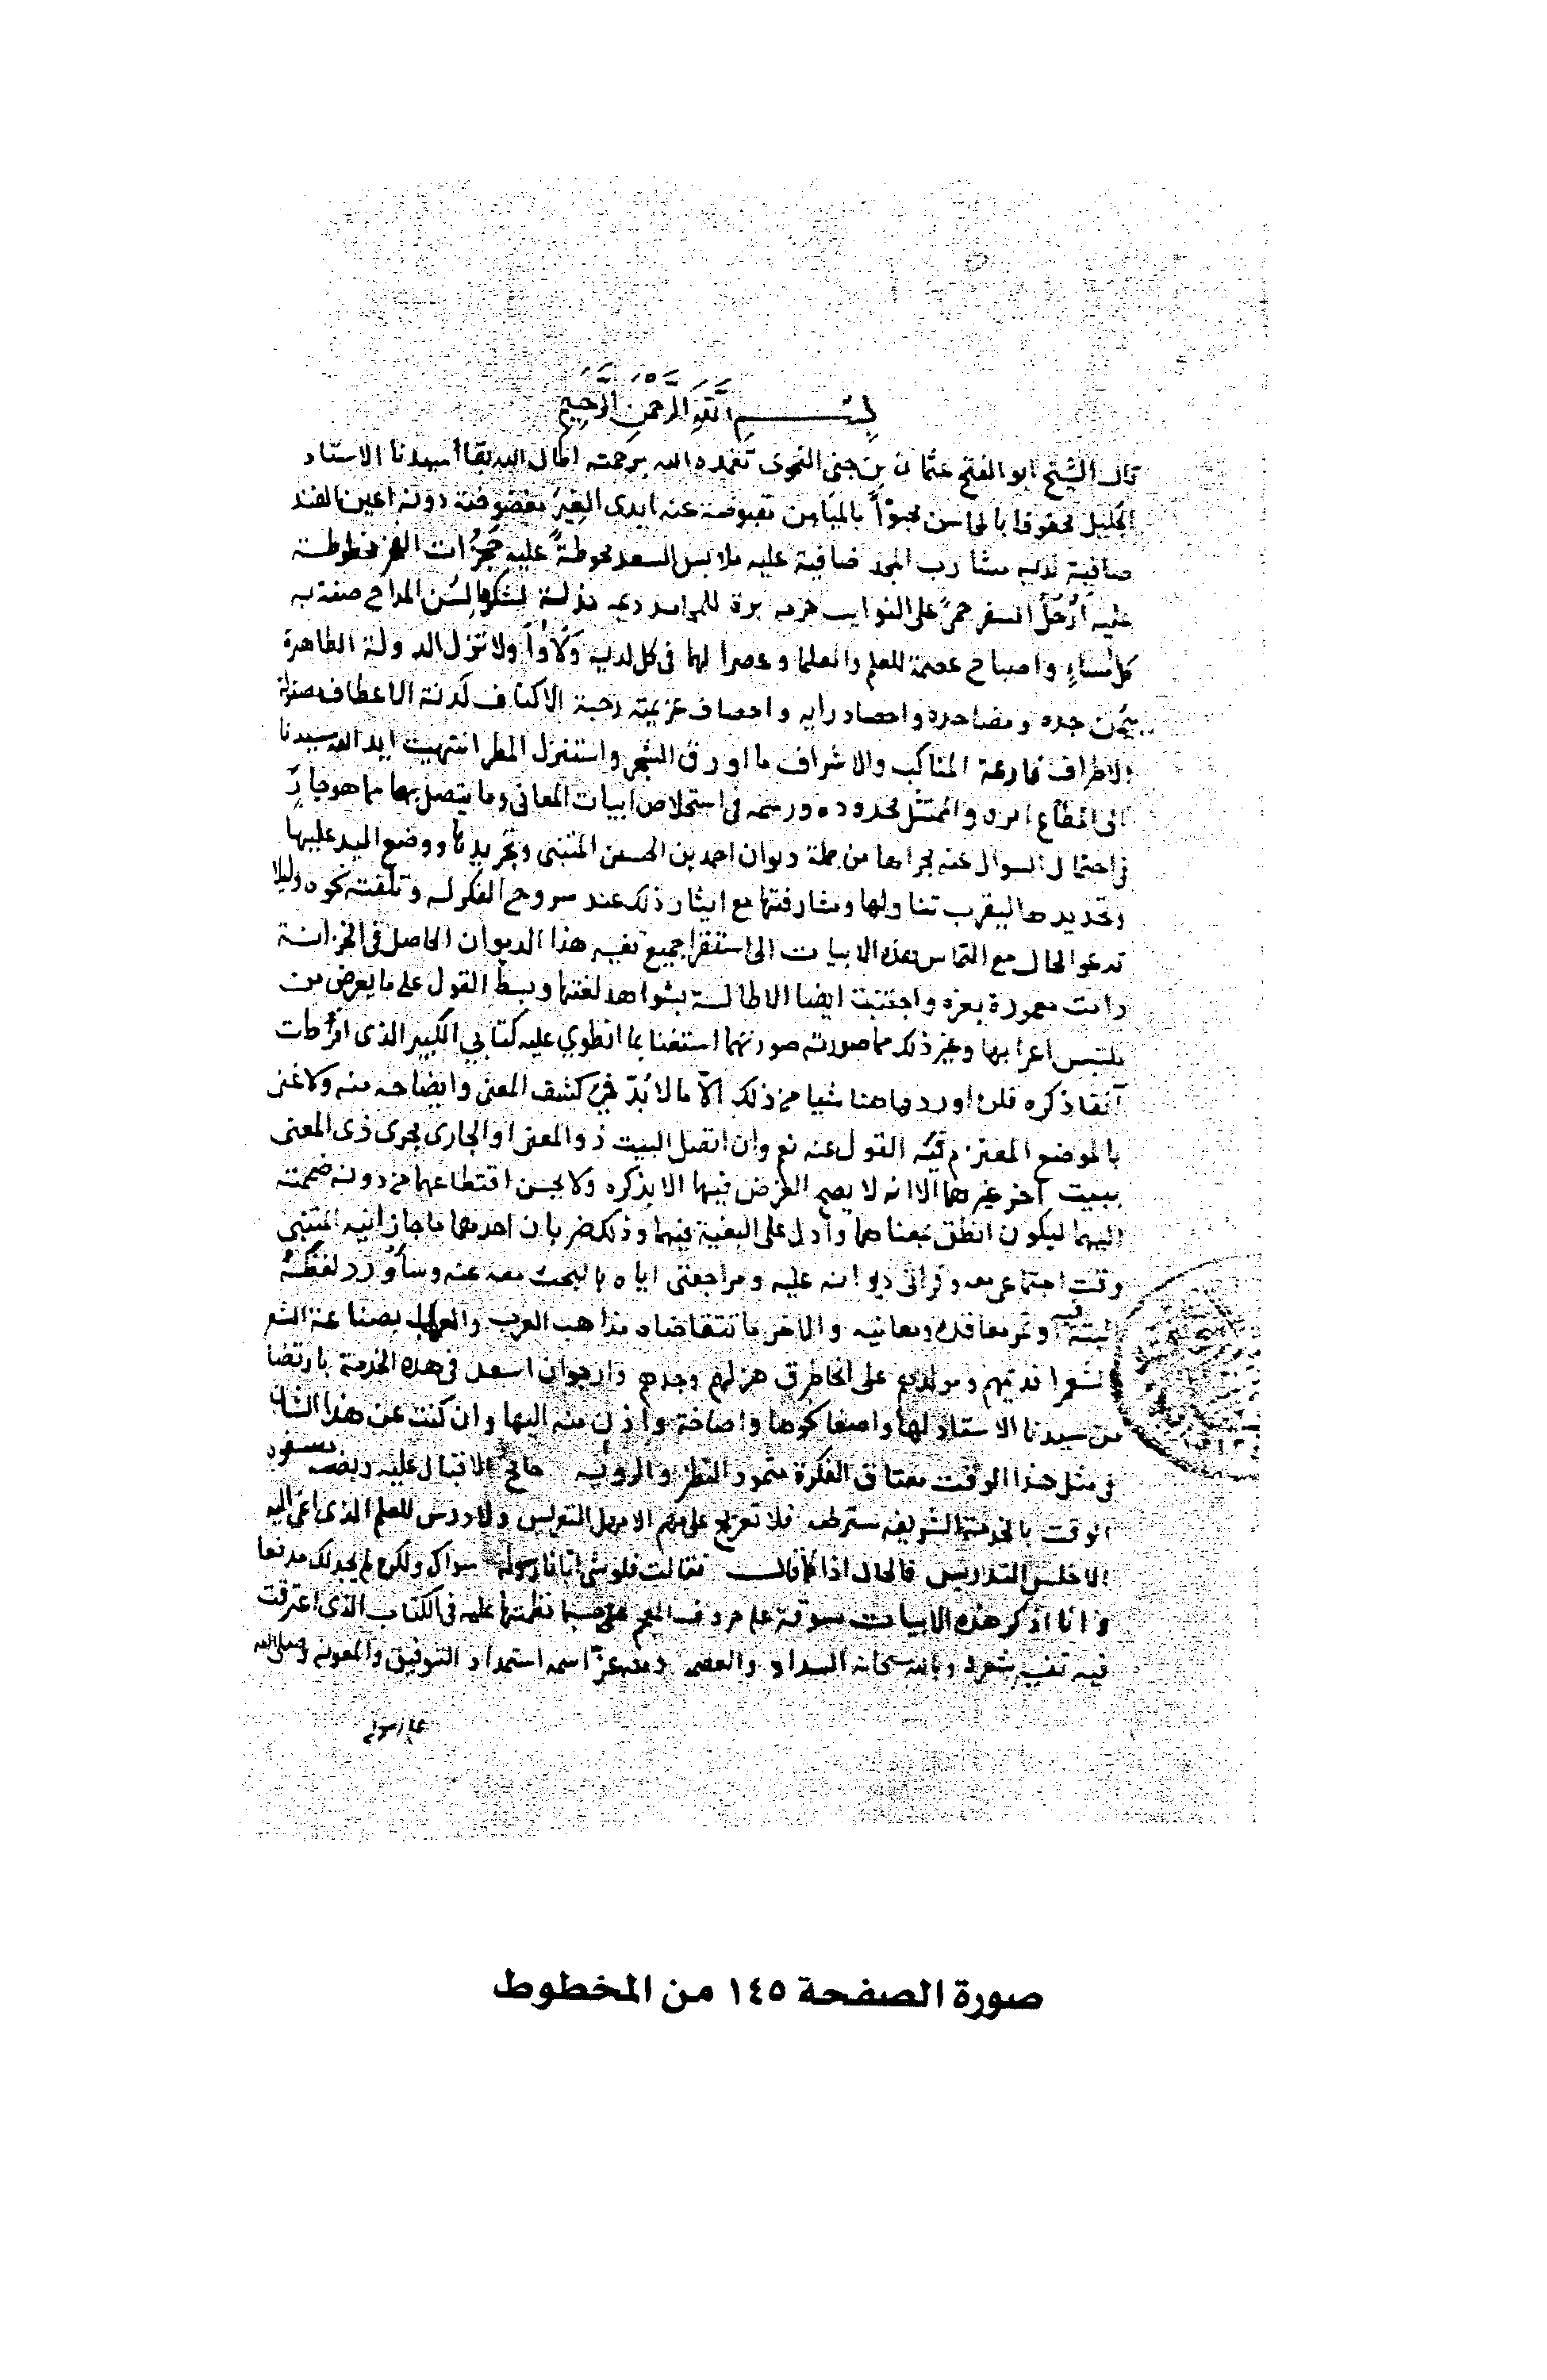 بسم الله الرحمن الرحيم
قال الشيخ ابو الفتح عثمان بن جني النحوي تغمده الله برحمته اطال الله بقاأ سيدنا الاستاد
الجليل محفوفا بالمحاسن محبوّاً بالميامن مقبوضة عنه ايدى الغِيَر مغضوضة دونه اعين
صافية لديه مشارب المجد ضافية عليه ملابس السعد محوطةً عليه حجزات العز محطوطة
عليه ارحل السفر حمىً على النوايب حرمه برة
كل مساءٍ واصباح عصمة للعلم والعلما وعصرا لهما في كل ولا تزل الدولة الظاهرة
بيمن جده ومضا حده واحصاد رايه واحصاف عزيمته رحبة الاكناف لدنة الاعطاف مصقولة
الاطراف فارعة المناكب والاشراف ما اورق الشجر واستنزل المطر انتهيت ايد الله سيدنا
الى المطاع امره والممتثل محدوده ورسمه في استخلاص ابيات المعاني وما يتصل بها مما هو جارٍ
في احتمال السوال عنه مجراها من جملة ديوان احمد بن الحسين المتنبي وتجريدها ووضع اليد عليها
وتحديدها ليقرب تناولها ومشارفتها مع ايثار ذلك عند سروح الفكر له وتلفته نحوه وليلا
تدعو الحال مع التماس هذه الابيات الى استقرا جميع تفسير هذا الديوان الحاصل في الخزانة
دامت معمورة بعزه واجتنبت ايضا الاطالة بشواهد لغتها وبسط القول على ما يعرض من
ملتبس اعرابها وغير ذلك مما صورته صورتهما استغنا بما انطوي عليه كتابي الكبير الذى افرطت
آنفا ذكره فلن اورد هاهنا شيا من ذلك الّا ما لا بُدّ في كشف المعنى وايضاحه منه ولا غنى
بالموضع المعتزم فيه القول عنه نعم وان اتصل البيت ذو المعنى او الجارى مجرى ذى المعنى
ببيت آخر غيرهما الا انه لا يصح الغرض فيها الا بذكره ولا يحسن اقتطاعهما من دونه ضممته
اليهما ليكون انطق بمعناهما وادل على البغية فيهما وذلك ضربان احدهما ما جازانيه المتنبي
وقت اجتماعي معه وقراتى ديوانه عليه ومراجعتى اياه بالبحث معه عنه وساورد لفظه
البتة فيه او معاقده ومعانيه والاخر ما تتقاضاه مذاهب العرب بصناعة الشعر
الشعرا قديمهم ومولدهم على الخاطر في هزلهم وجدهم وارجو ان اسعد في هذه الخدمة بارتضا
من سيدنا الاستاد لها واصغا نحوها واصاخة واذن منه اليها وان كنت عن هذا الشان
في مثل هذا الوقت معتاق الفكرة مثمود النظر والروية الاقبال عليه
الوقت بالخدمة الشريفة فلا تعريج على
الا خلس التداريس فالحال اذا كما قال فقالت فلو شى اتانا رسوله سواك ولكن لم نجد لك مدفعا
وانا اذكر هذه الابيات مسوقة على حروف المعجم على حسب ما نظمتها عليه في الكتاب الذى اعترقت
فيه تفسير شعره وبالله سبحانه السداد والعصمة ومنه عزّ اسمه استمداد التوفيق والمعونة وصلى الله
على رسوله
صورة الصفحة ١٤٥ من المخطوط